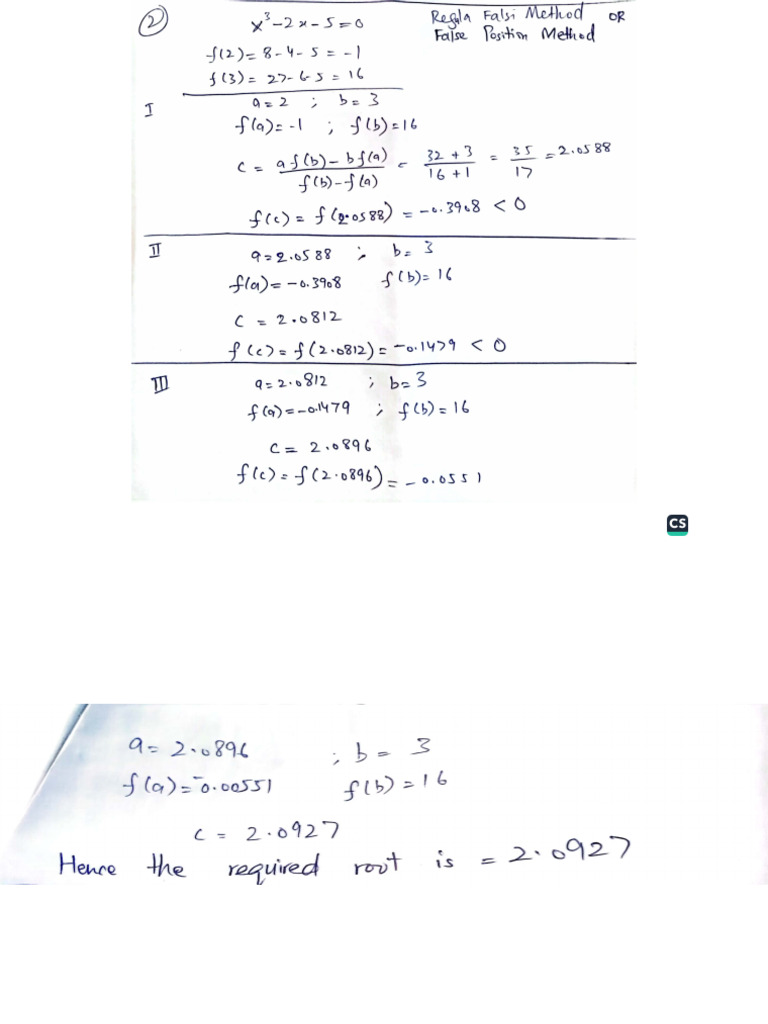 ② x³-2x-5=0 Regula Falsi Method OR
False Position Method
f(2)= 8-4-5 = -1
f(3)= 27-6-5 = 16
I a=2 ; b=3
f(a)=-1 ; f(b)=16
c = af(b)-bf(a) / f(b)-f(a) = 32+3 / 16+1 = 35/17 = 2.0588
f(c) = f(2.0588) = -0.3908 < 0
II a=2.0588 ; b=3
f(a)=-0.3908 f(b)=16
c = 2.0812
f(c) = f(2.0812) = -0.1479 < 0
III a=2.0812 ; b=3
f(a)=-0.1479 ; f(b)=16
c = 2.0896
f(c) = f(2.0896) = -0.0551
CS
a= 2.0896 ; b = 3
f(a)=-0.00551 f(b)=16
c = 2.0927
Hence the required root is = 2.0927